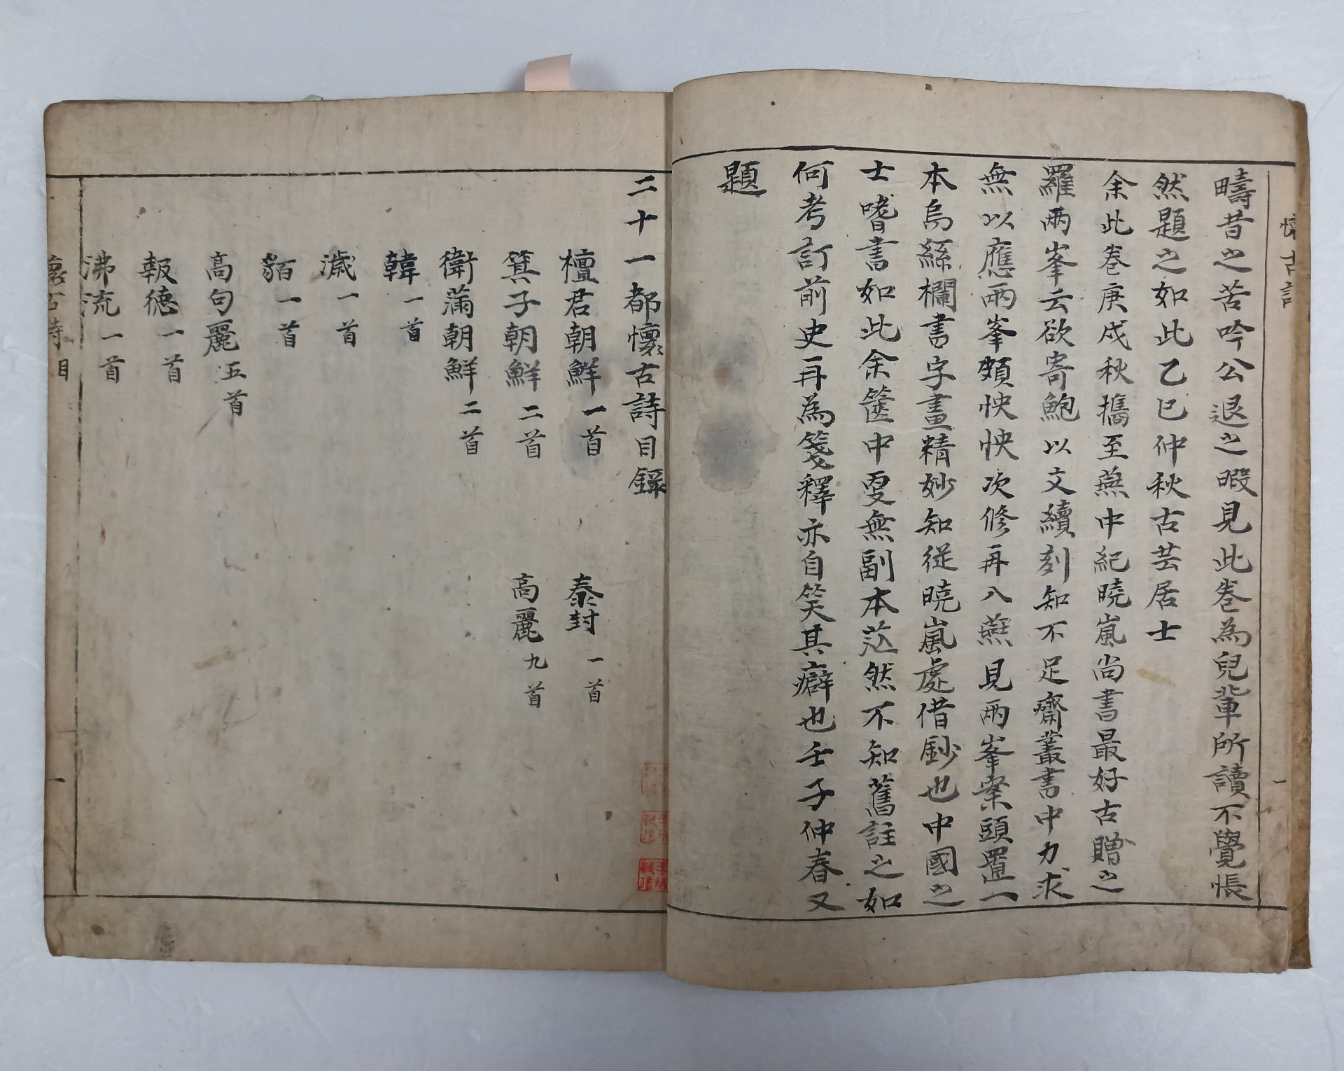 疇昔之苦吟公退之暇見此卷為兒輩所讀不覺悵
然題之如此乙巳仲秋古芸居士
余此卷庚戌秋攜至燕中紀曉嵐尚書最好古贈之
羅兩峯云欲寄鮑以文續刻知不足齋叢書中力求
無以應兩峯頗怏怏次修再入燕見兩峯案頭置一
本烏絲欄書字畫精妙知從曉嵐處借鈔也中國之
士嗜書如此余篋中更無副本茫然不知舊註之如
何考訂前史再為箋釋亦自笑其癖也壬子仲春又
題
二十一都懷古詩目錄
檀君朝鮮 一首 泰封 一首
箕子朝鮮 二首 高麗 九首
衛滿朝鮮 二首
韓 一首
濊 一首
貊 一首
高句麗 五首
報德 一首
沸流 一首
懷古詩 目 一